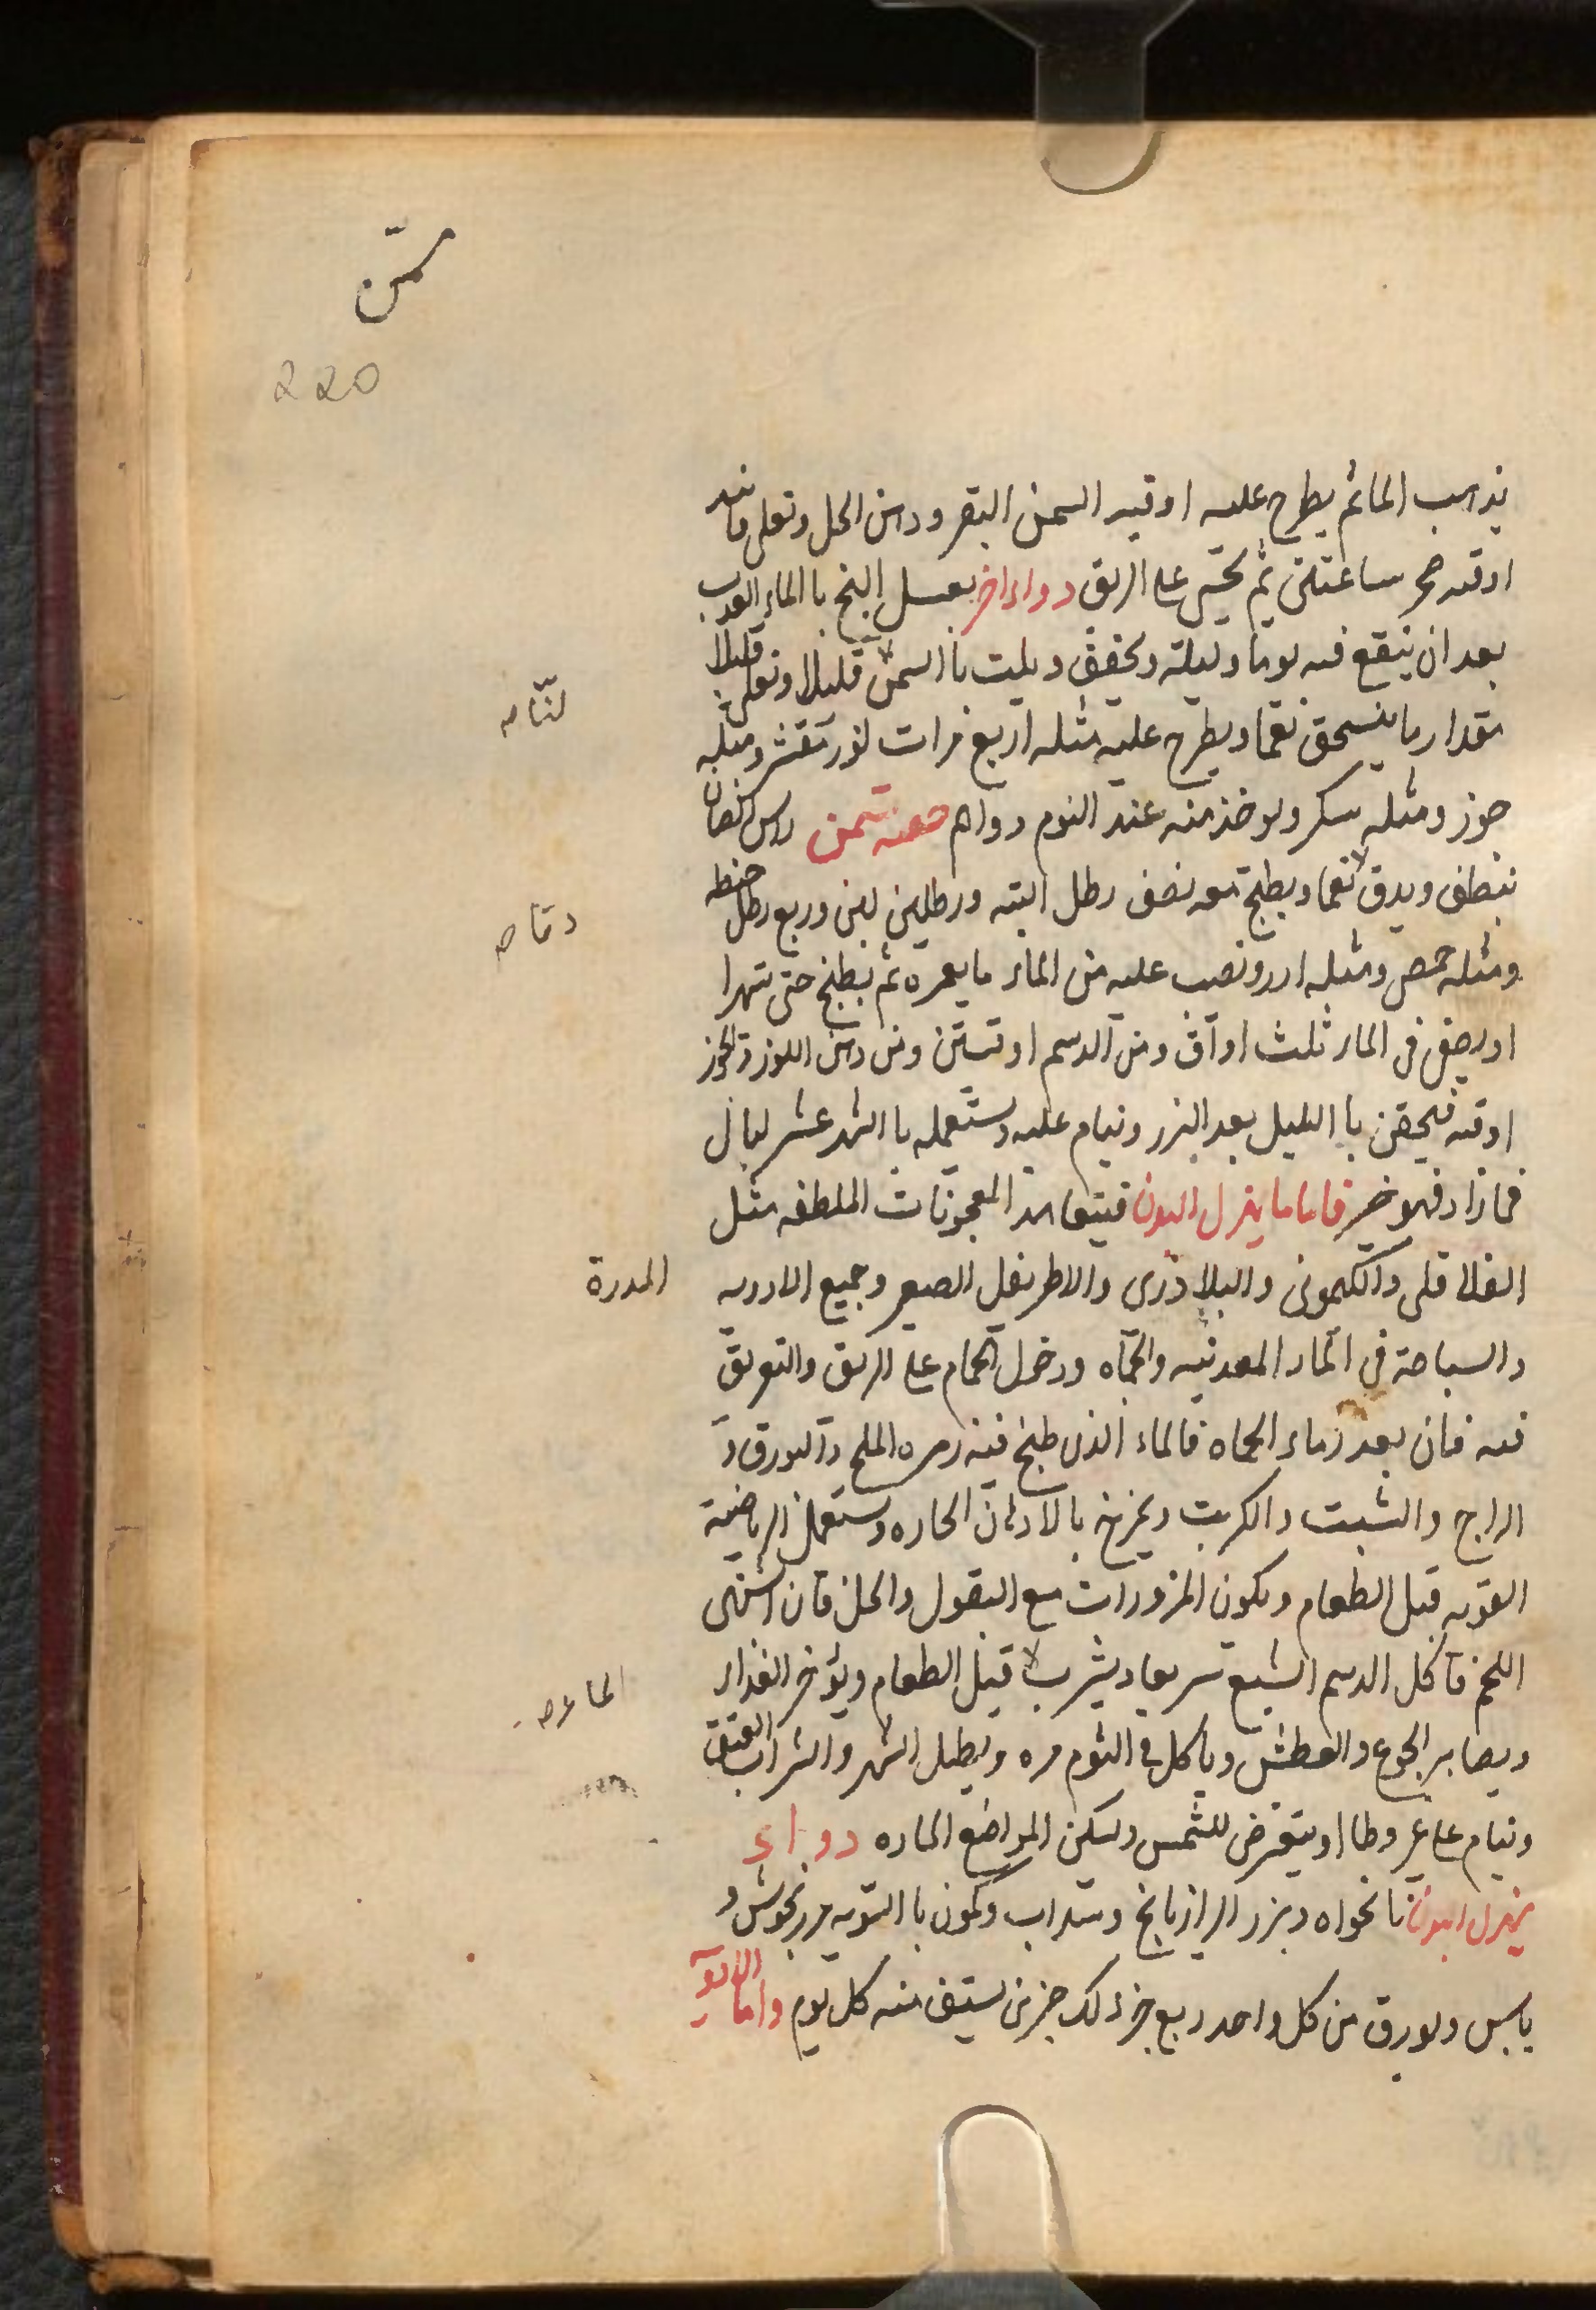 سمّن
220
يذهب الماء ثم يطرح عليه اوقيه السمن البقر ودهن الحل وتعلى منه
اوقيه حر ساعتين ثم تحسى على الريق دواء اخر يغسل البنج باالماء العذب
بعد ان ينقع فيه يوما وليلة ويجفف ويلت باالسمن قليلا وتعلى قليلا
لتّا صه
مقدار ما ينسحق نعما ويطرح عليه مثله اربع مرات لوز مقشر ومثله
جوز ومثله سكر ويوخذ منه عند النوم دواهم حقنه تسمن راس الضان
ينظف ويدق نعما ويطبخ معه نصف رطل اليه ورطلين لبن وربع رطل حنطه
دقا صه
ومثله حمص ومثله ارز ونصب عليه من الماء ما يغمره ثم يطبخ حتى تتهرا
اويصفى من الماء ثلث اواق ومن الدسم اوقيتين ومن دهن اللوز والجوز
اوقيه فيحقن باالليل بعد البزر وينام عليه ويستعمله باالشهر عشر ليال
فمازاد فهو خير فاما ما يهزل البدن فيتعاهد المعجونات الملطفه مثل
الفلافلى والكمونى والبلاذرى والاطريفل الصغير وجميع الادويه
المدرة
والسباحة فى الماء المعدنيه والحماه ودخول الحمام على الريق والتعريق
فيه فان بعد ماء الحماه فالماء الذى طبخ فيه زهره الملح والبورق و
الزاج والشبت والكبريت ويمرخ بالادهان الحاره ويستعمل الرياضة
القويه قبل الطعام ويكون المزورات مع البقول والخل فان اشتهى
اللحم فاكل الدسم الشبع سريعا ويشرب قبل الطعام ويؤخر الغذاء
الما عصه
ويصابر الجوع والعطش وياكل فى اليوم مره ويطيل السهر والشراب العتيق
وينام على غير وطا اويتعرض للشمس ويسكن المواضع الحاره دواء
يهزل البدن نانخواه وبزر الرازيانج وسداب وكمون باالسويه مرزنجوش و
يابس وبورق من كل واحد ربع جز ذلك جز من يستف منه كل يوم واما